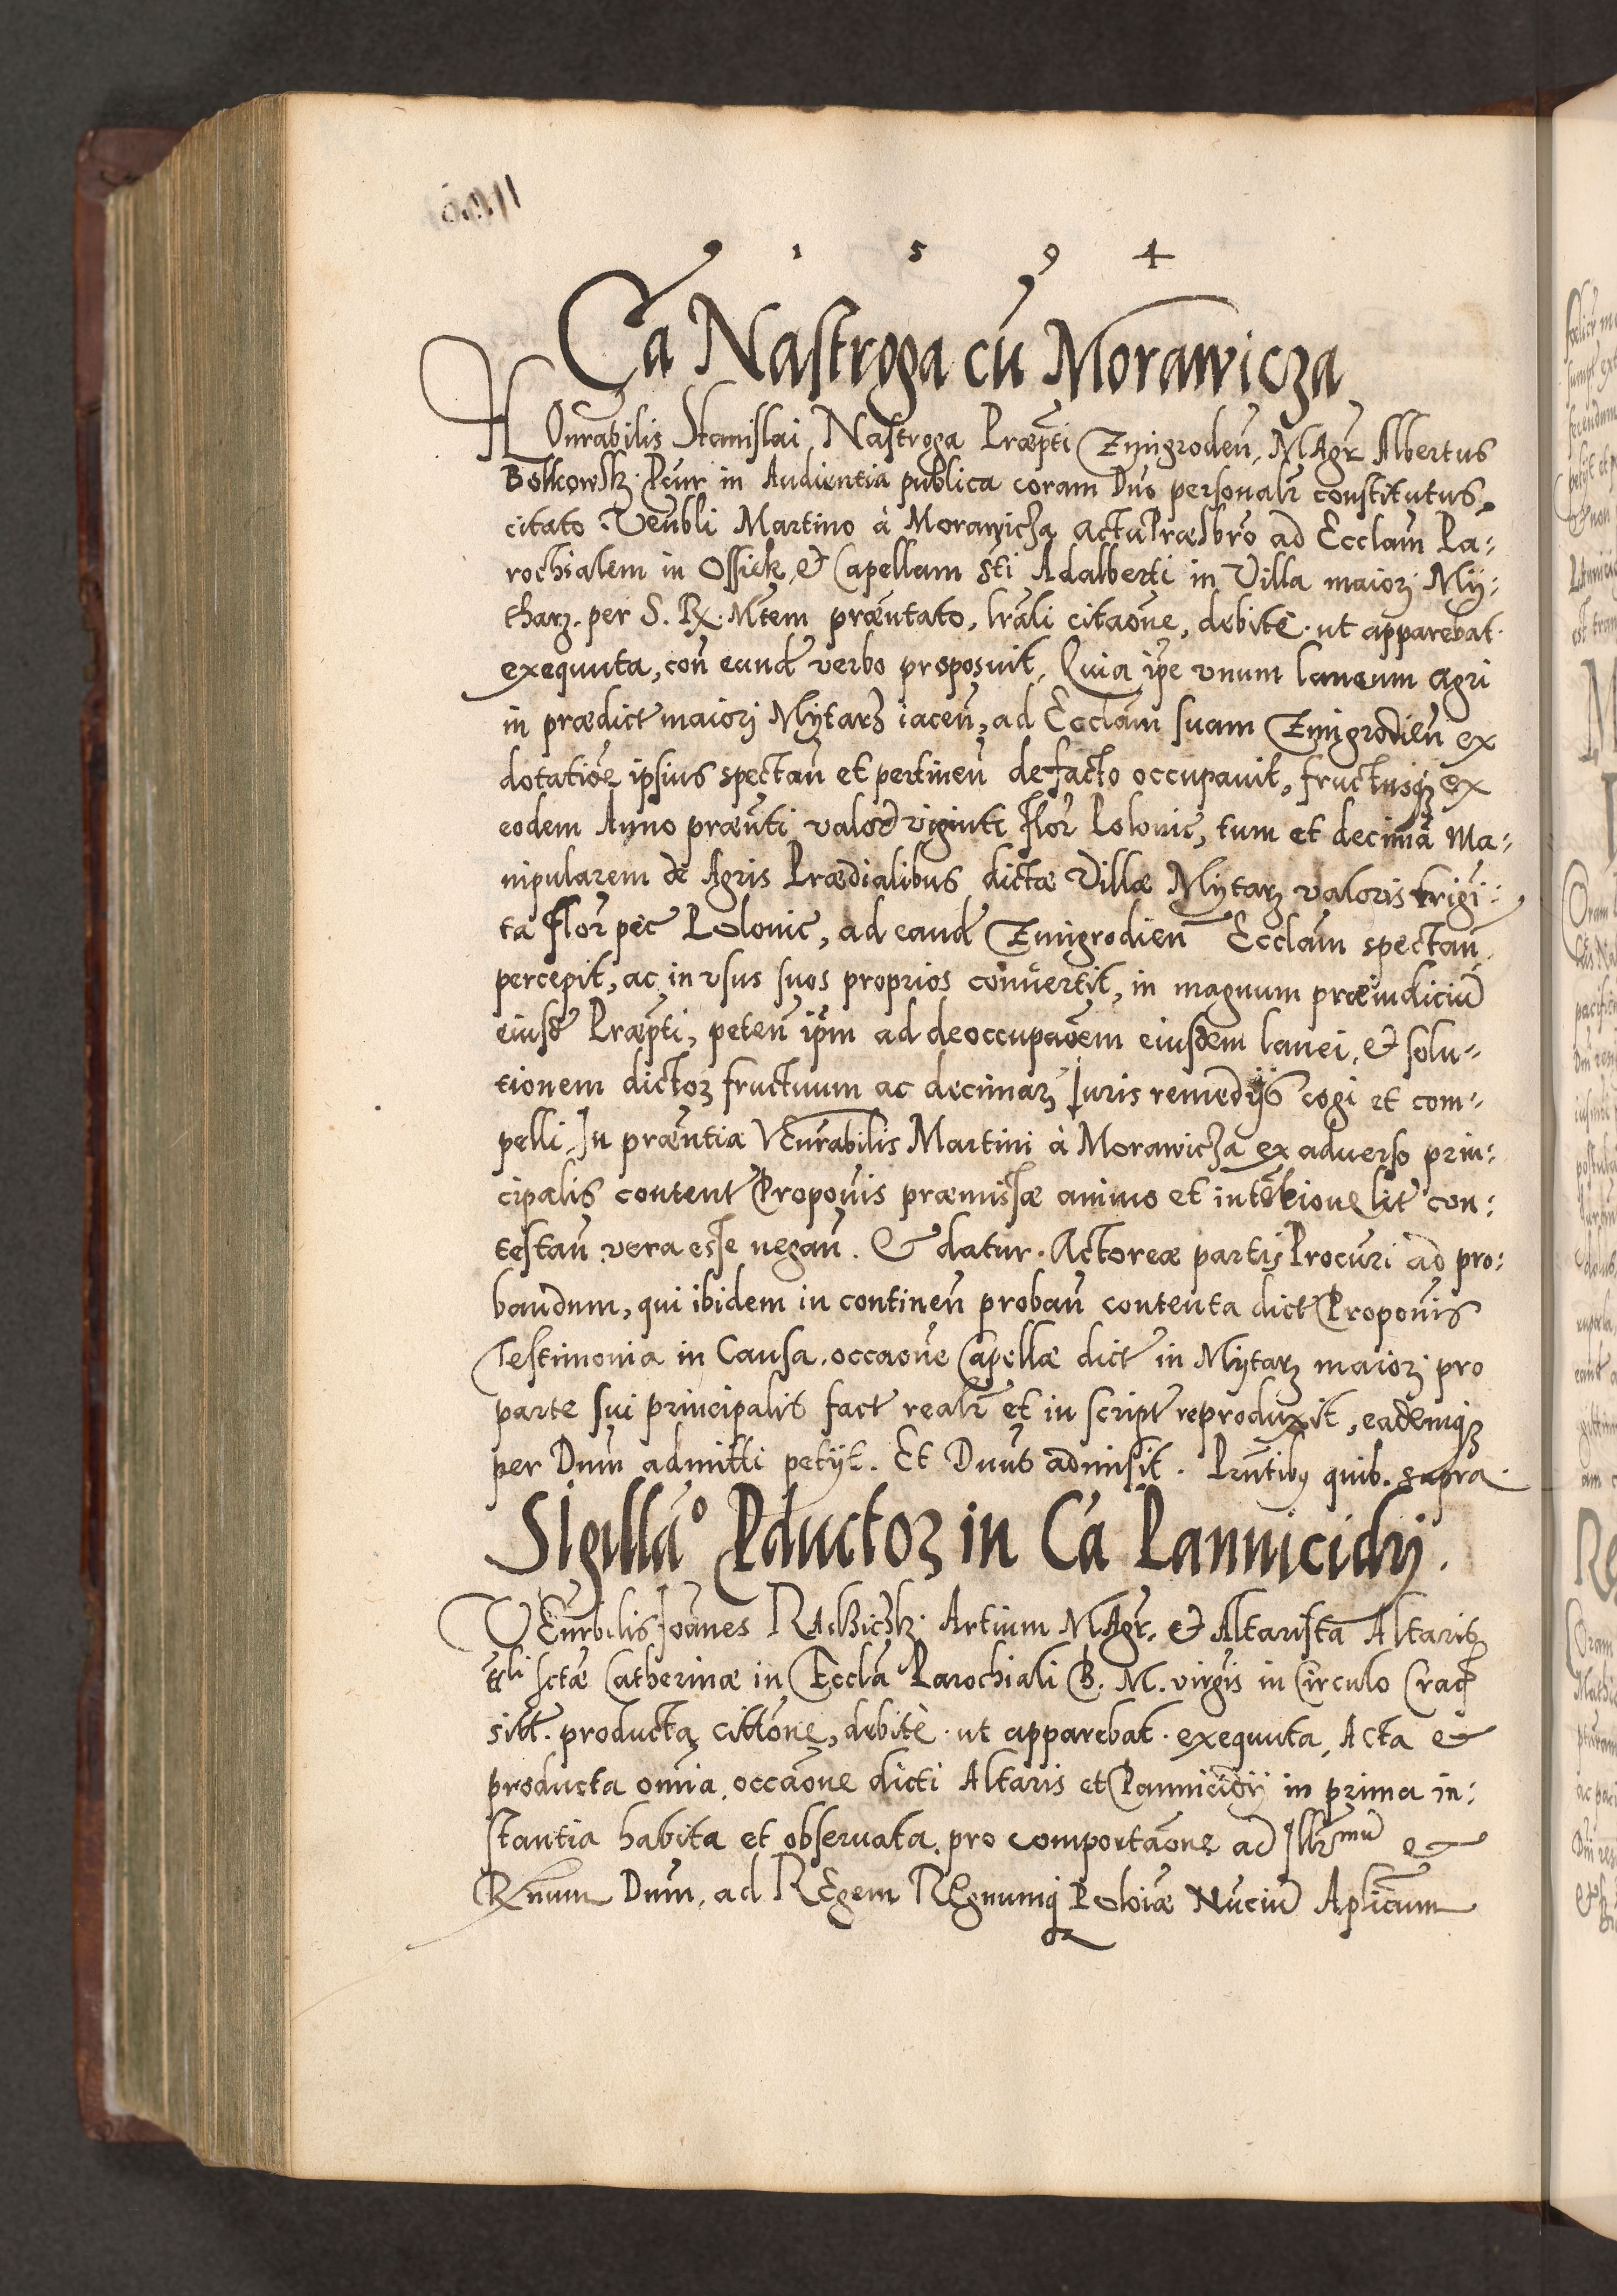 1 5 9 4
Ca Nastroga cū Morawicza
HOnrabilis Stanislai Nastroga Præpti Zmigrodeñ, MAgr Albertus
Borkowsk. Pcur in Audientia publica coram Dño personalr constitutus,
citato Veñbli Martino à Morawicza actu Præsbro ad Ecclam Pa-
rochialem in Ossiek, & Capellam Sti Adalberti in Villa maiorj Mij-
tharz. per S. R. Mtem præntato, lrali citaõne, debitè ut apparebat
exequuta, coñ eund verbo proposuit, Quia ipse vnum laneum agri
in prædict maiorj Mijtarz iaceñ, ad Ecclam suam Zmigrodieñ ex
dotatiõe ipsius spectañ et pertineñ de facto occupauit, fructusqz ex
eodem Anno præñti valor viginti Flor Polonic, tum et decimã Ma-
nipularem de Agris Prædialibus dictæ Villæ Mijtarz valoris trigi-
ta Flor pec Polonic, ad eand Zmigrodieñ Ecclam spectañ
percepit, ac in vsus suos proprios conuertit, in magnum præiudiciū
eiusd Præpti, peteñ ipm ad deoccupaõem eiusdem lanei, & solu-
tionem dictoz fructuum ac decimaz Iuris remedijs cogi et com-
pelli. In præntia VEnrabilis Martini à Morawicza ex aduerso prin-
cipalis content Propoñis præmissæ animo et intẽtione lit con-
testañ vera esse negañ. & datur Actoreæ partis Procuri ad pro-
bandum, qui ibidem in contineñ probañ contenta dict Propoñis
Testimonia in Causa occaõne Capellæ dict in Mijtarz maiorj pro
parte sui principalis fact realr et in script reproduxit, eademqz
per Dnm admitti petijt. Et Dnus admisit. Prñtibus quib. supra.
Sigillaõ Pductoz in Ca Pannicidij.
VEnrbilis Ioannes Artium MAgr. & Altarista Altaris
ttli sctæ Catherinæ in Eccla Parochiali B. M. virgis in Circulo Crac
sitt. producta cittõne, debitè ut apparebat exequuta, Acta &
producta omia occaõne dicti Altaris et Pannicidij in prima in-
stantia habita et obseruata pro comportaõne ad Illrmū &
Rnum Dnm, ad REgem REgnumq Poloiæ Nuciū Aplicum